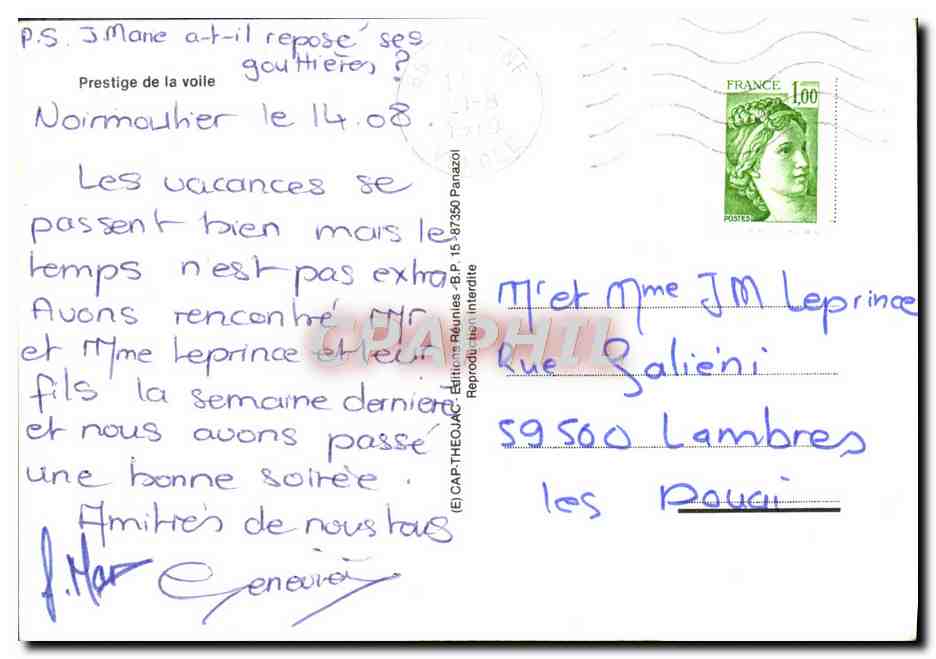 P.S. J.Marie a-t-il reposé ses
gouttières ?
Prestige de la voile
Noirmoutier le 14.08.
Les vacances se
passent bien mais le
temps n'est pas extra.
Avons rencontré Mr
et Mme Leprince et leur
fils la semaine dernière
et nous avons passé
une bonne soirée.
Amitiés de nous tous
J. Mar
Geneviève
(E) CAP-THEOJAC - Editions Réunies - B.P. 15 - 87350 Panazol
Reproduction interdite
FRANCE 1,00
POSTES
Mr et Mme JM Leprince
Rue Galiéni
59500 Lambres
les Douai
CPAPHIL